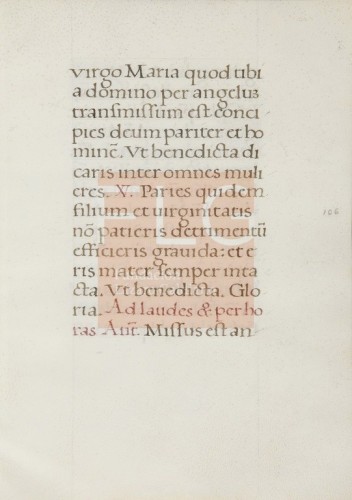 virgo Maria quod tibi
a domino per angelū
transmissum est conci
pies deum pariter et ho
minē. Vt benedicta di
caris inter omnes muli
eres. V. Paries quidem
filium et uirginitatis
nō patieris detrimentū
efficieris grauida: et e
ris mater semper inta
cta. Vt benedicta. Glo
ria. Ad laudes & per ho
ras Añt. Missus est an
106
FLG